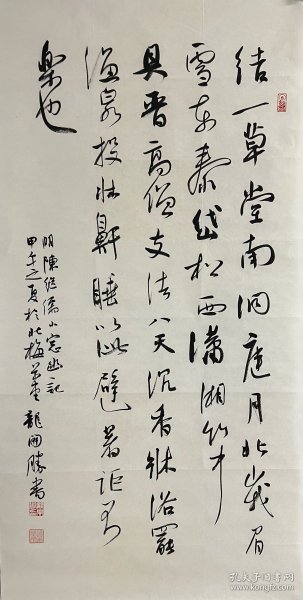 结一草堂南洞庭月北峨眉
雪东泰岱松西潇湘竹中
具晋高僧支法八天沉香床浴罢
温泉投床鼾睡以此避暑讵不
乐也
明陈继儒小窗幽记
甲午之夏于北梅 龙开胜书
孔夫子旧书网